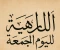 اللارهية
لليوم الجمعة